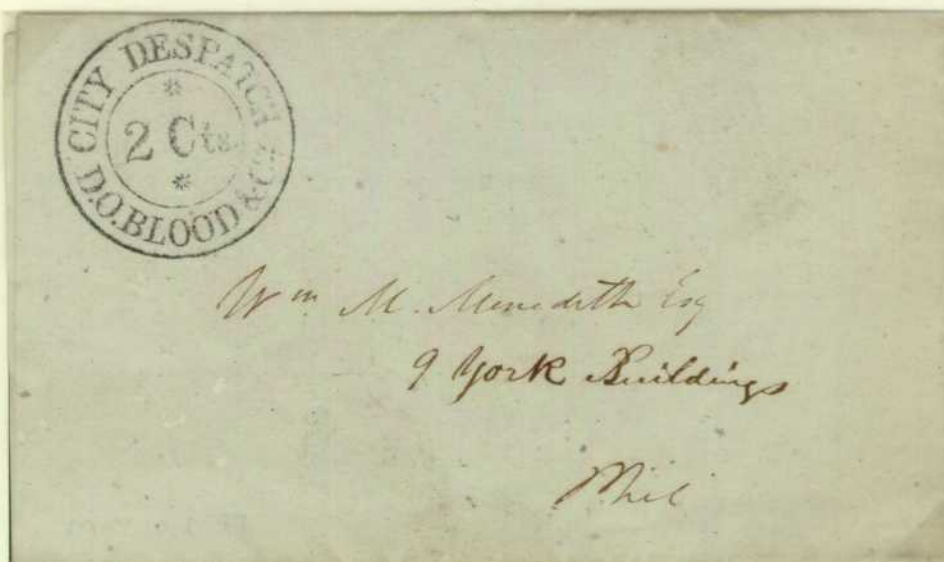 CITY DESPATCH
2 Cts.
D.O. BLOOD & Co.
Wm M. Meredith Esq
9 York Buildings
Phil